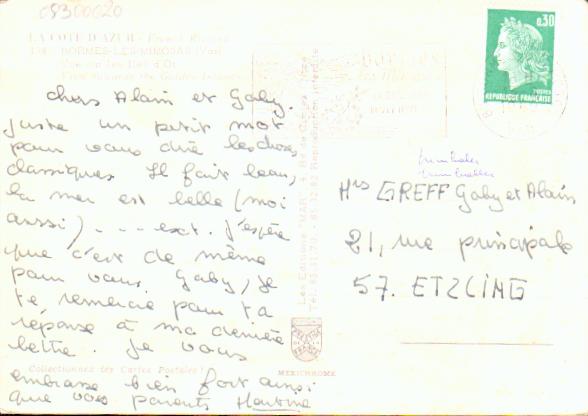 09300020
LA COTE D'AZUR - French Riviera
BORMES-LES-MIMOSAS (Var)
Vue sur les Iles d'Or
Chers Alain et Gaby.
Juste un petit mot
pour vous dire les choses
classiques. Il fait beau,
la mer est belle (moi
aussi) .... ect. J'espère
que c'est de même
pour vous. Gaby, je
te remercie pour ta
réponse à ma dernière
lettre. Je vous
embrasse bien fort ainsi
que vos parents
Collectionnez les Cartes Postales !
Les Editions "MAR"
Reproduction interdite
MEXICHROME
0,30
POSTES
REPUBLIQUE FRANÇAISE
BORMES
GREFF Gaby et Alain
21, rue principale
57. ETZLING